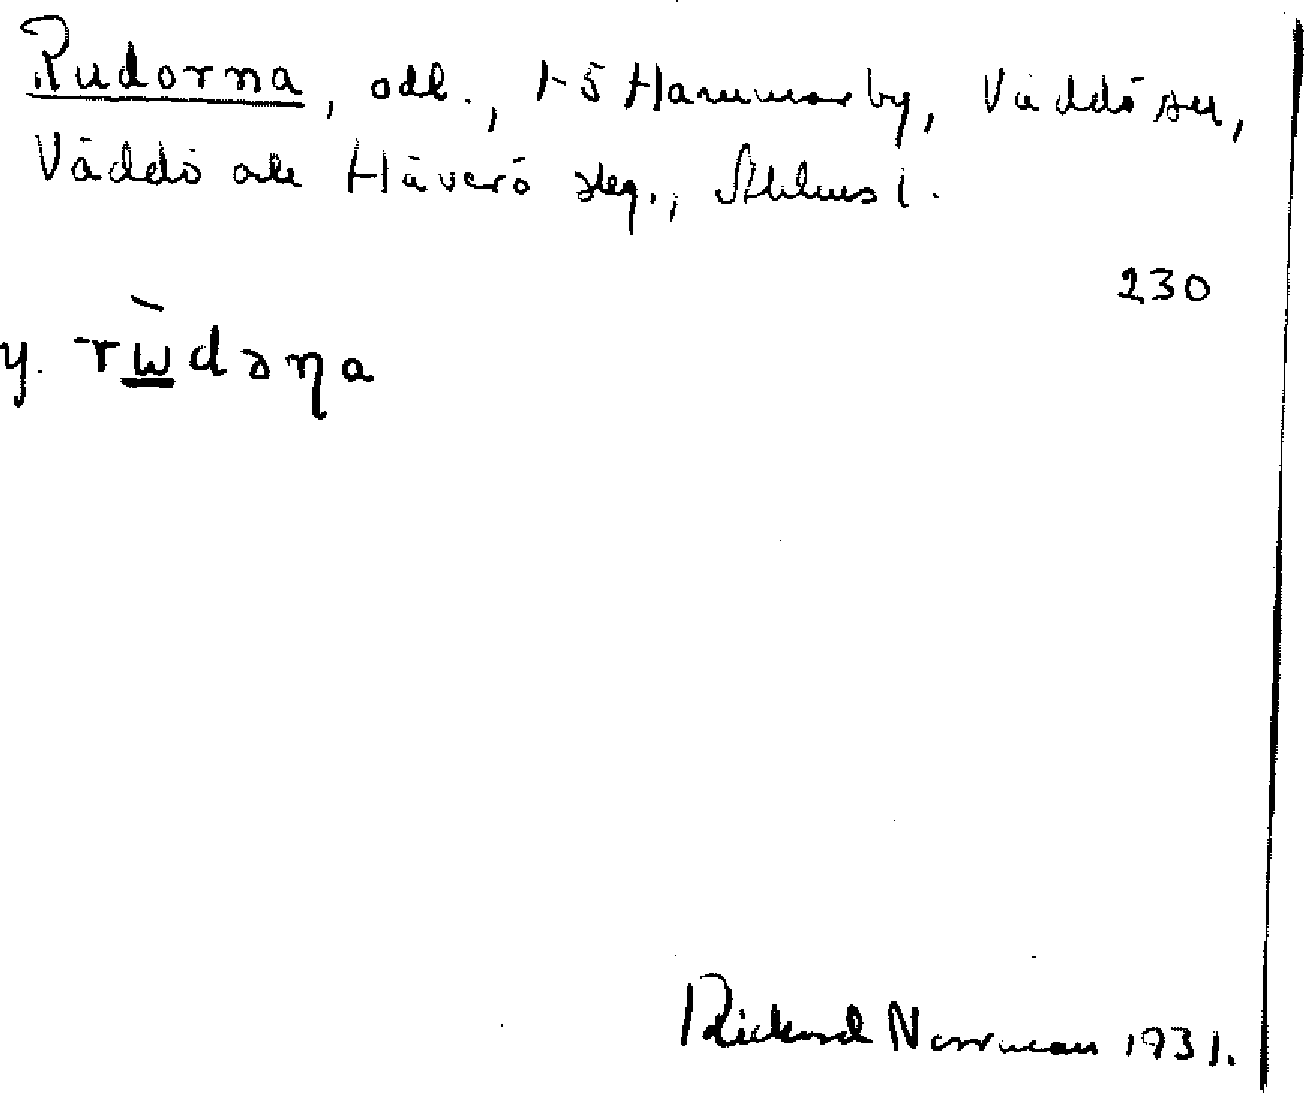 Rudorna, odl., 1-5 Hammarby, Väddö sn,
Väddö och Häverö skg., Sthlms l.
230
y. rѡ̀dəṇa
Rickard Norrman 1931.